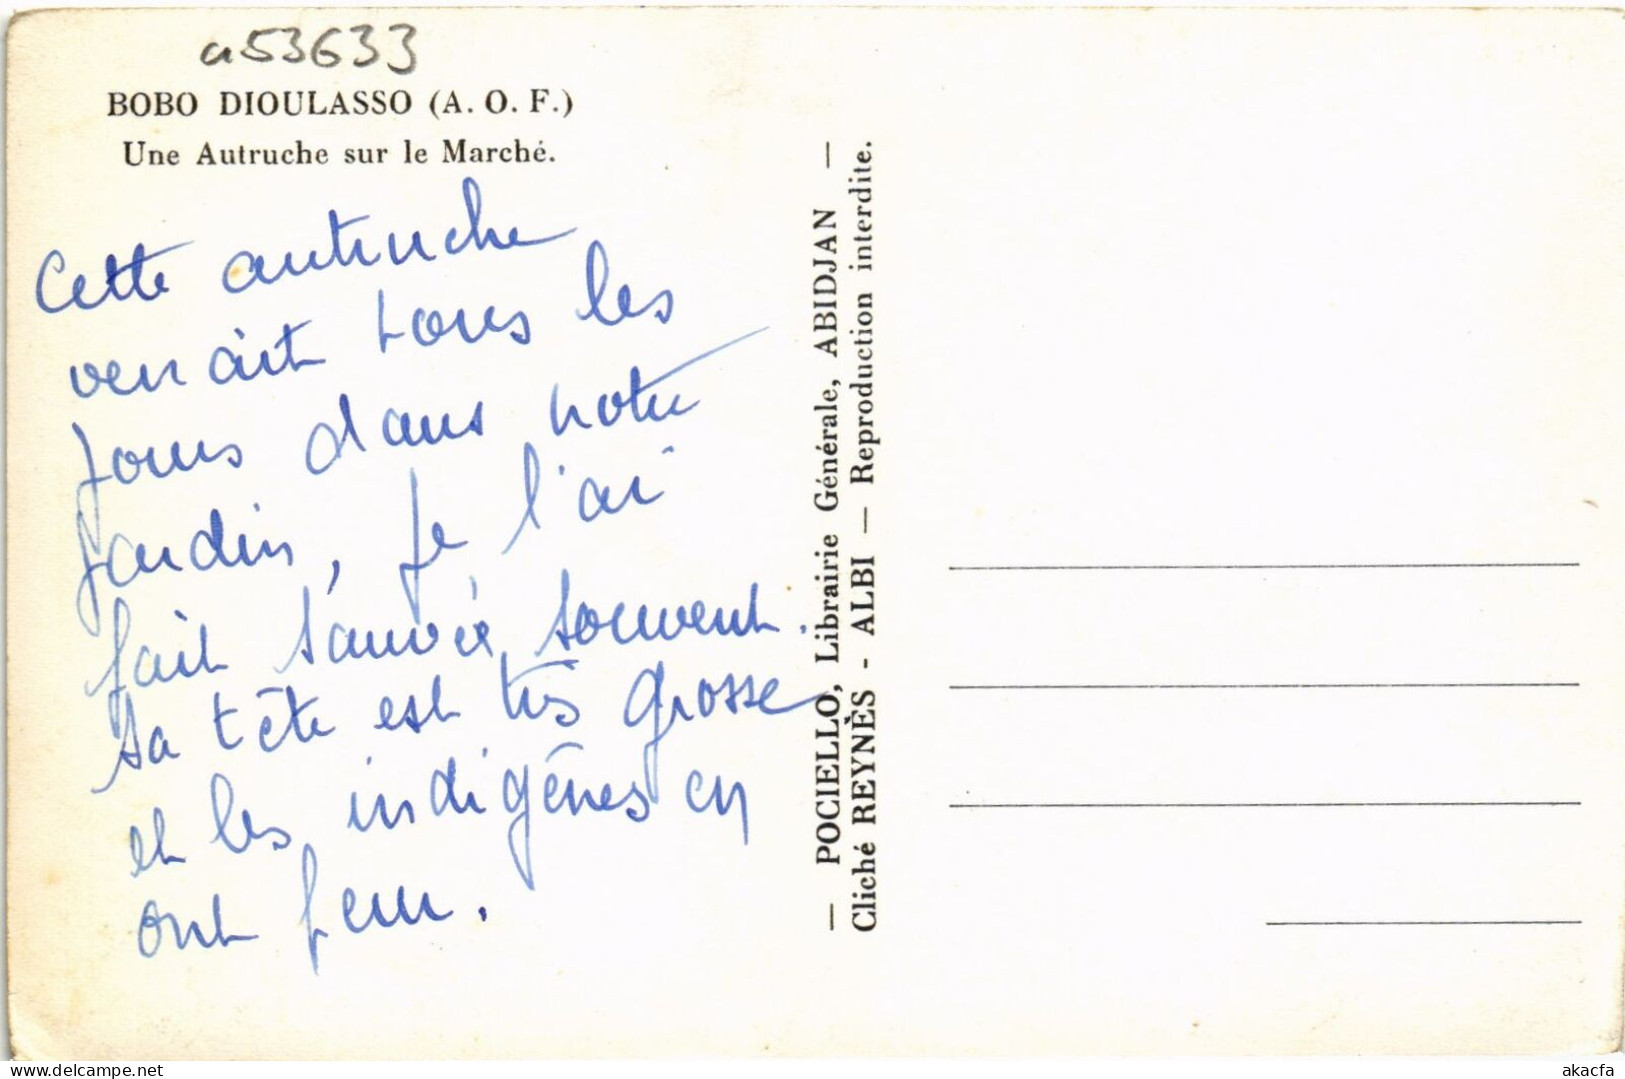 a53633
BOBO DIOULASSO (A. O. F.)
Une Autruche sur le Marché.
Cette autruche
venait tous les
jours dans notre
jardin, je l'ai
fait sauvée souvent.
Sa tête est très grosse
et les indigênes en
ont peur.
— POCIELLO, Librairie Générale, ABIDJAN —
Cliché REYNÈS - ALBI — Reproduction interdite.
akacfa